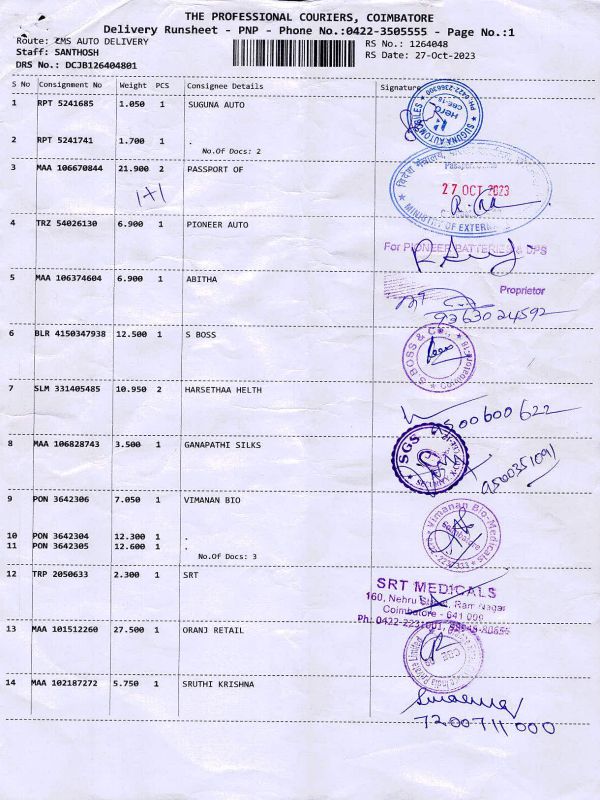 THE PROFESSIONAL COURIERS, COIMBATORE
Delivery Runsheet - PNP - Phone No.:0422-3505555 - Page No.:1
Route: EMS AUTO DELIVERY
RS No.: 1264048
Staff: SANTHOSH
RS Date: 27-Oct-2023
DRS No.: DCJB126404801
S No Consignment No Weight PCS Consignee Details Signature
1 RPT 5241685 1.050 1 SUGUNA AUTO
SUGUNA AUTOMOBILES PH: 0422-2366300
Hero
CBE-18
2 RPT 5241741 1.700 1 .
No.Of Docs: 2
3 MAA 106670844 21.900 2 PASSPORT OF
1+1
विदेश मंत्रालय,
27 OCT 2023
MINISTRY OF EXTERNAL
4 TRZ 54026130 6.900 1 PIONEER AUTO
For PIONEER BATTERIES & UPS
Proprietor
5 MAA 106374604 6.900 1 ABITHA
9263024592
6 BLR 4150347938 12.500 1 S BOSS
S BOSS & CO., Coimbatore-18
7 SLM 331405485 10.950 2 HARSETHAA HELTH
9500600622
8 MAA 106828743 3.500 1 GANAPATHI SILKS
SGS
SECURITY
9500351091
9 PON 3642306 7.050 1 VIMANAN BIO
Vimanan Bio-Medicals
Coimbatore
10 PON 3642304 12.300 1 .
11 PON 3642305 12.600 1 .
No.Of Docs: 3
12 TRP 2050633 2.300 1 SRT
SRT MEDICALS
160, Nehru Street, Ram Nagar
Coimbatore - 641 009
Ph: 0422-2231001,
13 MAA 101512260 27.500 1 ORANJ RETAIL
India Private Limited
CBE
14 MAA 102187272 5.750 1 SRUTHI KRISHNA
7200711000